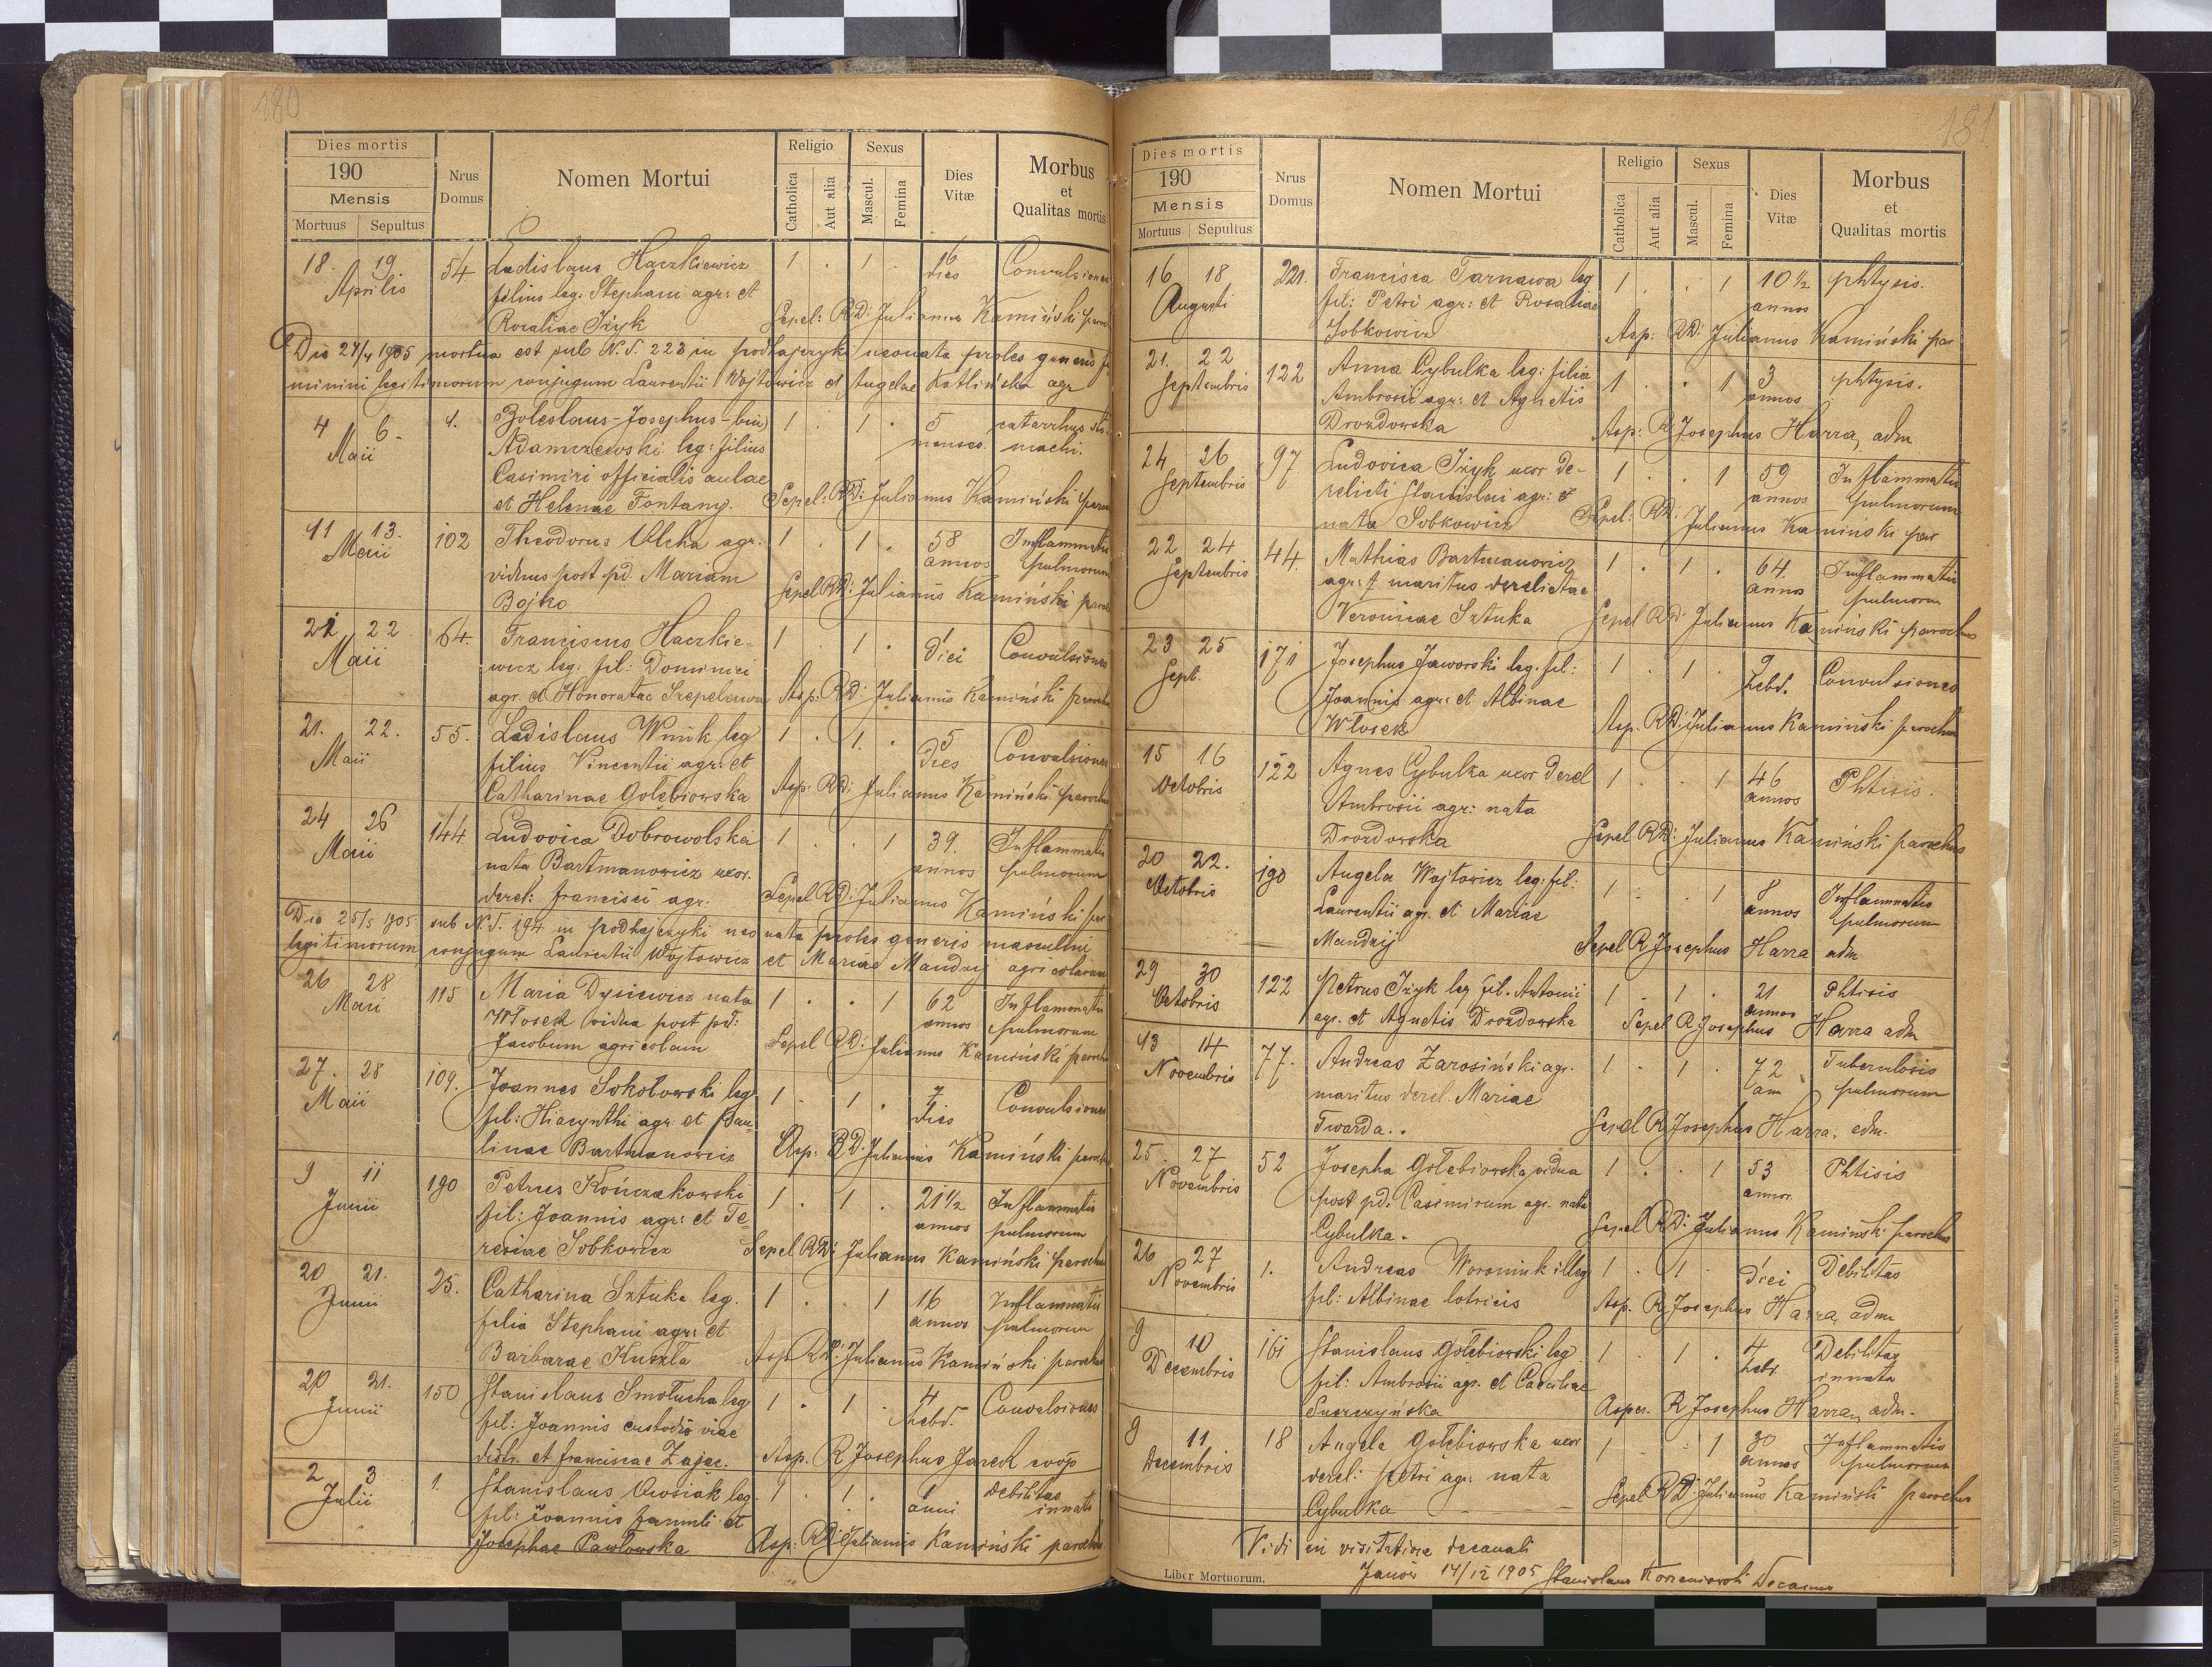 180
Dies mortis
190
Mensis
Mortuus Sepultus
Nrus Domus
Nomen Mortui
Religio
Catholica
Aut alia
Sexus
Mascul.
Femina
Dies Vitæ
Morbus et Qualitas mortis
18. 19 54. Ladislaus Haczkiewicz 1 . 1 . 16 Convulsiones
Aprilis filius leg. Stephani agr: et dies
Rozaliae Iżyk Sepel: RD: Julianus Kamiński paro
Die 27/4 1905 mortua est sub N. d. 223 in podhajczyki neonata proles generis fe
minini legitimorum conjugum Laurentii Wojtowicz et Angelae Kotlińska agr
4 6 1. Boleslaus-Josephus-bin 1 . 1 . 5 catarrhus sto
Maii Adamczewski leg: filius menses machi.
Casimiri officialis aulae
et Helenae Fontany. Sepel: RD: Julianus Kamiński paro
11 13. 102 Theodorus Olcha agr. 1 . 1 . 58 Inflammatio
Maii viduus post pd. Mariam annos pulmorum
Bojko Sepel RD: Julianus Kamiński paro
22 22 64. Franciscus Haczkie- 1 . 1 . 1 Convulsiones
Maii wicz leg: fil: Dominici diei
agr. et Honoratae Szepelewa Asp: RD: Julianus Kamiński paroch
21. 22. 55. Ladislaus Wnuk leg 1 . 1. . 5 Convulsiones
Maii filius Vincentii agr: et Dies
Catharinae Gołebiowska Asp: RD: Julianus Kamiński paroch
24 26 144 Ludovica Dobrowolska 1 . . 1 39. Inflammatio
Maii nata Bartmanowicz uxor. annos pulmorum
derel: francisci agr. Sepel RD: Julianus Kamiński par
Die 25/5 905 sub N. d. 194 in podhajczyki neo nata proles generis masculini
legitimorum conjugum Laurentii Wojtowicz et Mariae Mandzij agricolarum
26 28 115 Maria Dysiewicz nata 1 . . 1 62 Inflammatio
Maii Włosek vidua post pd: annos pulmorum
Jacobum agricolam Sepel RD: Julianus Kamiński paroch
27. 28 109. Joannes Sokołowski leg 1 . 1 . 7 Convulsiones
Maii fil: Hiacynthi agr: et Pau- dies
linae Bartmanowicz Asp: RD: Julianus Kamiński paroch
9 11 190 Petrus Kończakowski 1 . 1 . 21 1/2 Inflammatio
Junii fil: Joannis agr: et Te- annos pulmorum
resiae Sobkowicz Sepel RD: Julianus Kamiński paroch
20 21. 25. Catharina Sztuka leg. 1 . . 1 16 Inflammatio
Junii filia Stephani agr: et annos pulmorum
Barbarae Kuszla Asp RD: Julianus Kamiński paroch
20 21. 150 Stanislaus Smołucha leg 1 . 1 . 4 Convulsiones
Junii fil: Joannis custodis viae hebd.
distr. et franciscae Zając. Asp. R Josephus Jarek coop
2 3 1. Stanislaus Owsiak leg. 1 . 1 . debilitas
Julii fil: Joannis famuli et anni innata
Josephae Pawłowska Asp: RD: Julianus Kamiński paroch
181
Dies mortis
190
Mensis
Mortuus Sepultus
Nrus Domus
Nomen Mortui
Religio
Catholica
Aut alia
Sexus
Mascul.
Femina
Dies Vitæ
Morbus et Qualitas mortis
16 18 221. Francisca Tarnawa leg 1 . . 1 10 1/2 phtysis.
Augusti fil: Petri agr: et Rosaliae annos
Sobkowicz Asp: RD: Julianus Kamiński par
21. 22 122 Anna Cybulka leg: filia 1 . . 1 3 phtysis.
Septembris Ambrosii agr: et Agnetis annos
Drozdowska Asp: R Josephus Harra, adm
24 26 97 Ludovica Iżyk uxor de- 1 . . 1 59 Inflammatio
Septembris relicti Stanislai agr: et annos pulmorum
nata Sobkowicz Sepel: RD: Julianus Kamiński par
22 24 44. Mathias Bartmanowicz 1 . 1 . 64. Inflammatio
Septembris agr: maritus derelictae annos pulmorum
Veronicae Sztuka Sepel RD: Julianus Kamiński parochus
23 25 171 Josephus Jaworski leg. fil: 1 . 1 . 9 Convulsiones
Sept. Joannis agr: et Albinae hebd.
Włosek Asp. RD: Julianus Kamiński parochus
15 16 122 Agnes Cybulka uxor derel 1 . . 1 46 Phtisis.
Octobris Ambrosii agr: nata annos
Drozdowska Sepel RD: Julianus Kamiński parochus
20 22. 190 Angela Wojtowicz leg: fil: 1 . . 1 8 Inflammatio
Octobris Laurentii agr. et Mariae annos pulmorum
Mandzij Sepel R Josephus Harra adm
29 30 122 Petrus Iżyk leg fil. Antonii 1 . 1 . 21 Phtisis
Octobris agr. et Agnetis Drozdowska annos
Sepel R Josephus Harra adm
13 14 77. Andreas Zarosiński agr. 1 . 1 . 72 Tuberculosis
Novembris maritus derel. Mariae an pulmorum
Twarda.. Sepel R Josephus Harra, adm.
25. 27 52 Josepha Gołebiowska vidua 1 . . 1 53 Phtisis
Novembris post pd. Casimirum agr. nata annor.
Cybulka. Sepel RD: Julianus Kamiński parochus
26 27 1. Andreas Woroniuk illeg 1 . 1 . 1 Debilitas
Novembris fil: Albinae lotricis diei
Asp. R Josephus Harra, adm
9 10 161 Stanislaus Gołebiowski leg 1 . 1 . 4 Debilitas
Decembris fil: Ambrosii agr. et Caeciliae hebd. innata
Suszczyńska Asper. R Josephus Harra, adm.
9 11 18 Angela Gołebiowska uxor 1 . . 1 30 Inflammatio
Decembris derel: petri agr: nata annos pulmorum
Cybulka Sepel RD: Julianus Kamiński parochus
Vidi in visitatione decanali
Janów 14/12 1905 Stanislaus Korzeniowski Decanus
Liber Mortuorum.